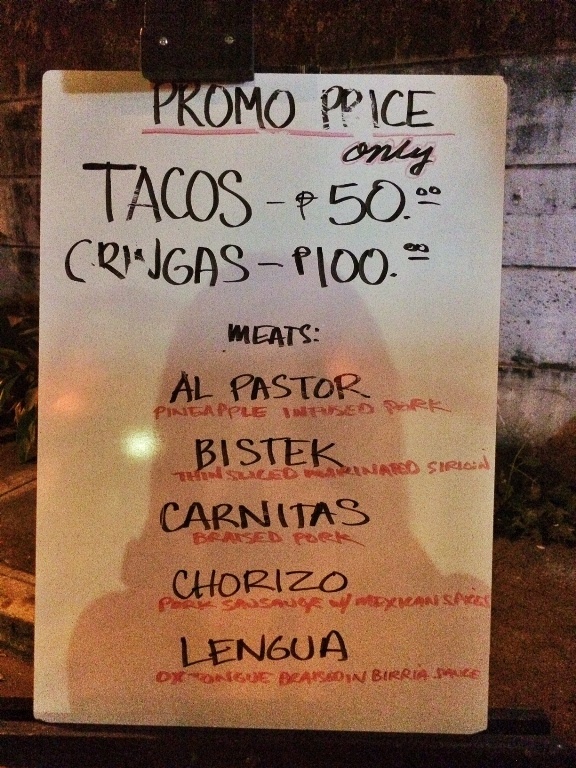 PROMO PRICE
only
TACOS - ₱50.00
GRINGAS - ₱100.00
MEATS:
AL PASTOR
PINEAPPLE INFUSED PORK
BISTEK
THIN SLICED MARINATED SIRLOIN
CARNITAS
BRAISED PORK
CHORIZO
PORK SAUSAUGE W/ MEXICAN SPICES
LENGUA
OX TONGUE BRAISED IN BIRRIA SAUCE